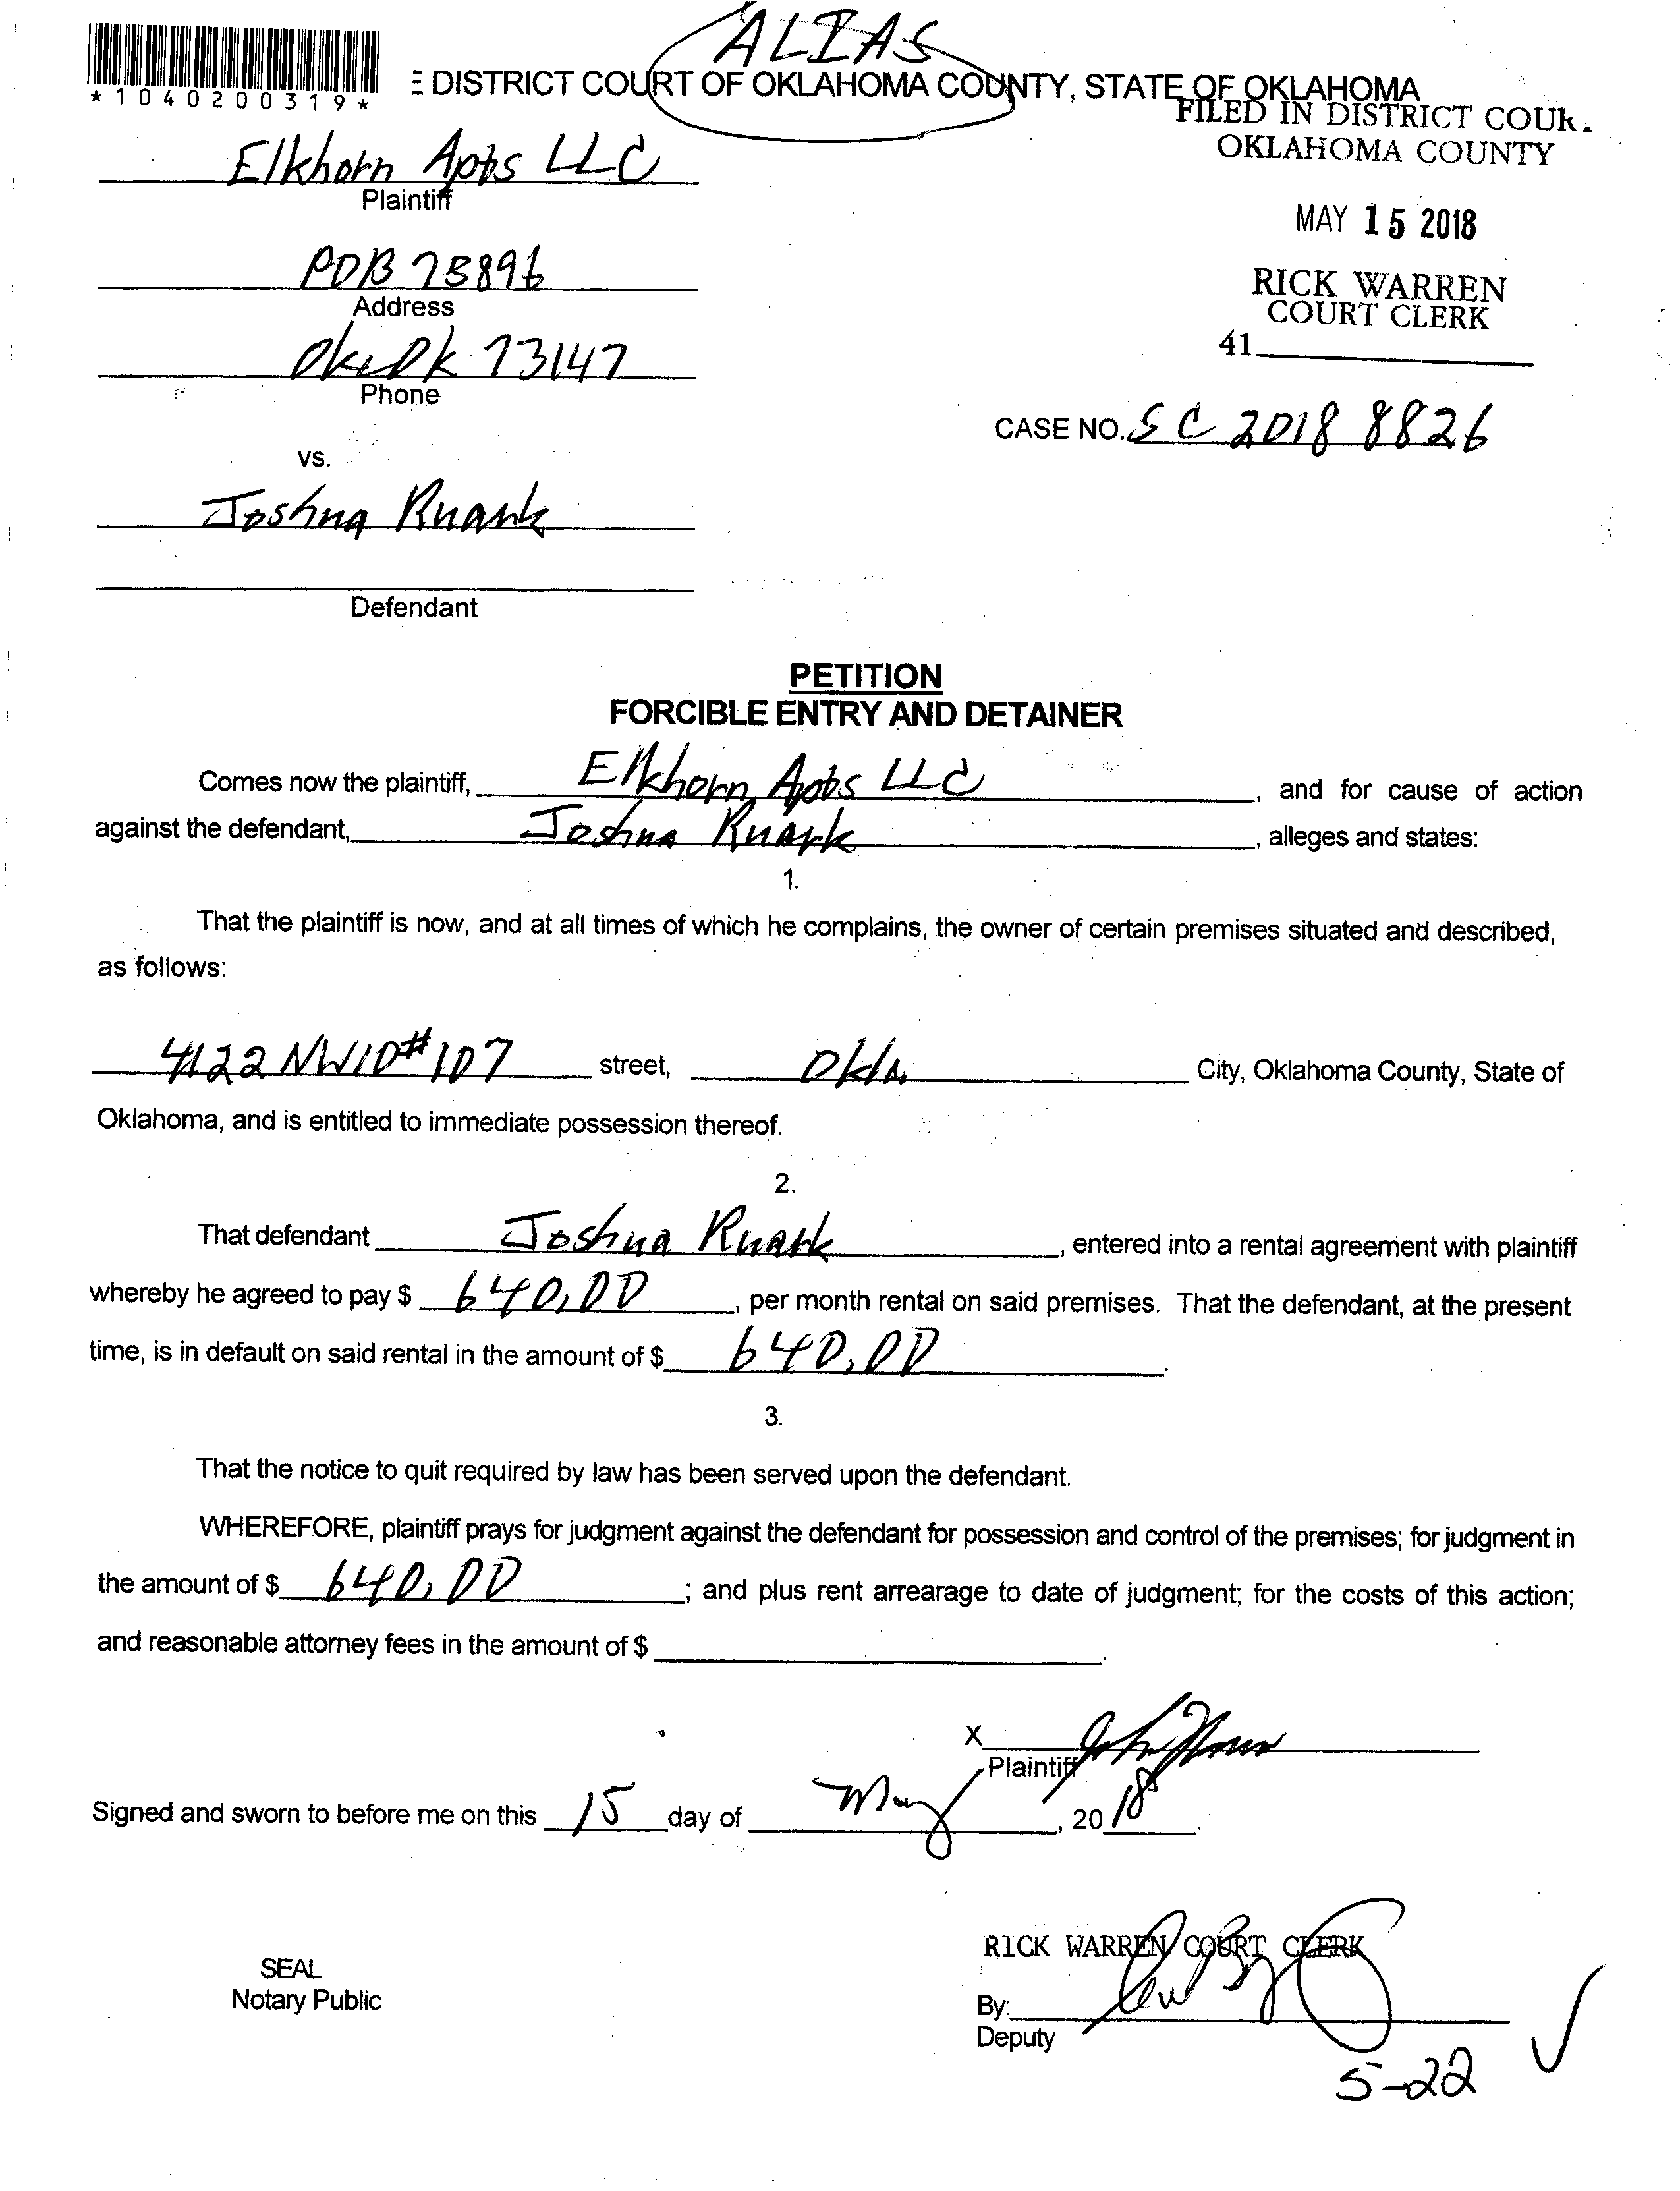 ALIAS
*1040200319*
E DISTRICT COURT OF OKLAHOMA COUNTY, STATE OF OKLAHOMA
FILED IN DISTRICT COUR.
OKLAHOMA COUNTY
Elkhorn Apts LLC
Plaintiff
MAY 15 2018
POB 75896
Address
RICK WARREN
COURT CLERK
Ok Ok 73147
41
Phone
CASE NO. SC 2018 8826
vs.
Joshua Ruark
Defendant
PETITION
FORCIBLE ENTRY AND DETAINER
Comes now the plaintiff, Elkhorn Apts LLC, and for cause of action
against the defendant, Joshua Ruark, alleges and states:
1.
That the plaintiff is now, and at all times of which he complains, the owner of certain premises situated and described,
as follows:
4122 NW10 #107 street, Okla. City, Oklahoma County, State of
Oklahoma, and is entitled to immediate possession thereof.
2.
That defendant Joshua Ruark, entered into a rental agreement with plaintiff
whereby he agreed to pay $ 640.00, per month rental on said premises. That the defendant, at the present
time, is in default on said rental in the amount of $ 640.00.
3.
That the notice to quit required by law has been served upon the defendant.
WHEREFORE, plaintiff prays for judgment against the defendant for possession and control of the premises; for judgment in
the amount of $ 640.00; and plus rent arrearage to date of judgment; for the costs of this action;
and reasonable attorney fees in the amount of $.
X
Plaintiff
Signed and sworn to before me on this 15 day of May, 2018.
RICK WARREN COURT CLERK
SEAL
Notary Public
By:
Deputy
5-22